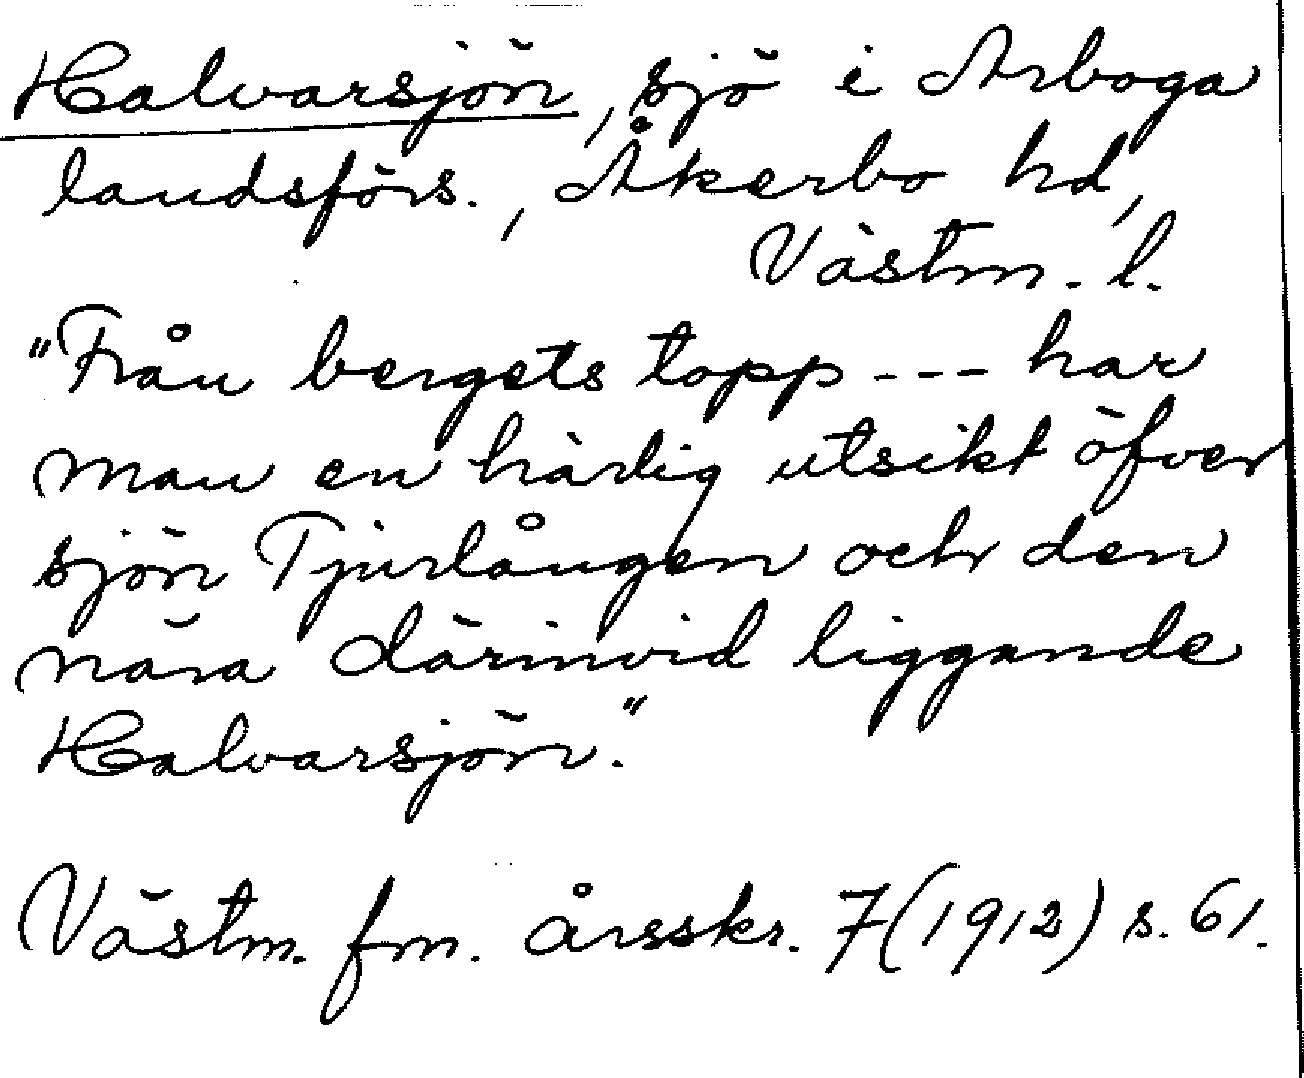 Halvarsjön, sjö i Arboga
landsförs., Åkerbo hd,
Västm. l.
"Från bergets topp --- har
man en härlig utsikt öfver
sjön Tjurlången och den
nära därinvid liggande
Halvarsjön."
Västm. fm. årsskr. 7(1912) s. 61.